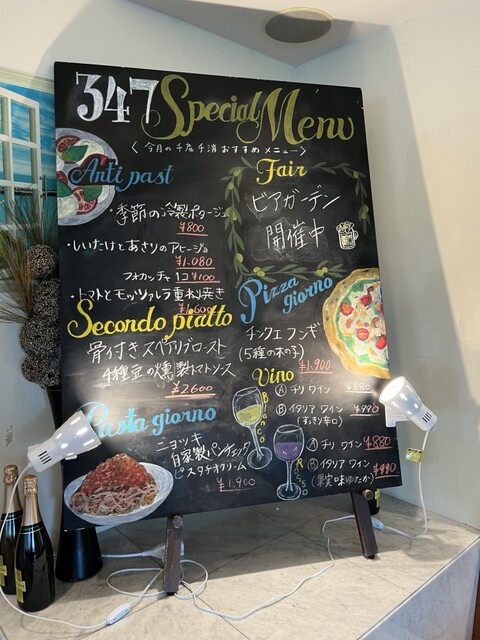 347 Special Menu
〈今月の千産千消おすすめメニュー〉
Anti past
・季節の冷製ポタージュ
¥800
・しいたけとあさりのアヒージョ
¥1,080
フォカッチャ 1コ¥100
・トマトとモッツァレラ重ね焼き
¥1,600
Fair
ビアガーデン
開催中
Secondo piatto
骨付きスペアリブロースト
4種豆の燻製トマトソース
¥2,600
Pizza
giorno
チンクエフンギ
(5種の木の子)
¥1,900
Pasta giorno
ニョッキ
自家製パンチェッタ
ピスタチオクリーム
¥1,900
Vino
Bianco
Ⓐ チリ ワイン ¥880
Ⓑ イタリア ワイン ¥990
(すっきり辛口)
Rosso
Ⓐ チリ ワイン ¥880
Ⓑ イタリア ワイン ¥990
(果実味ゆたか)